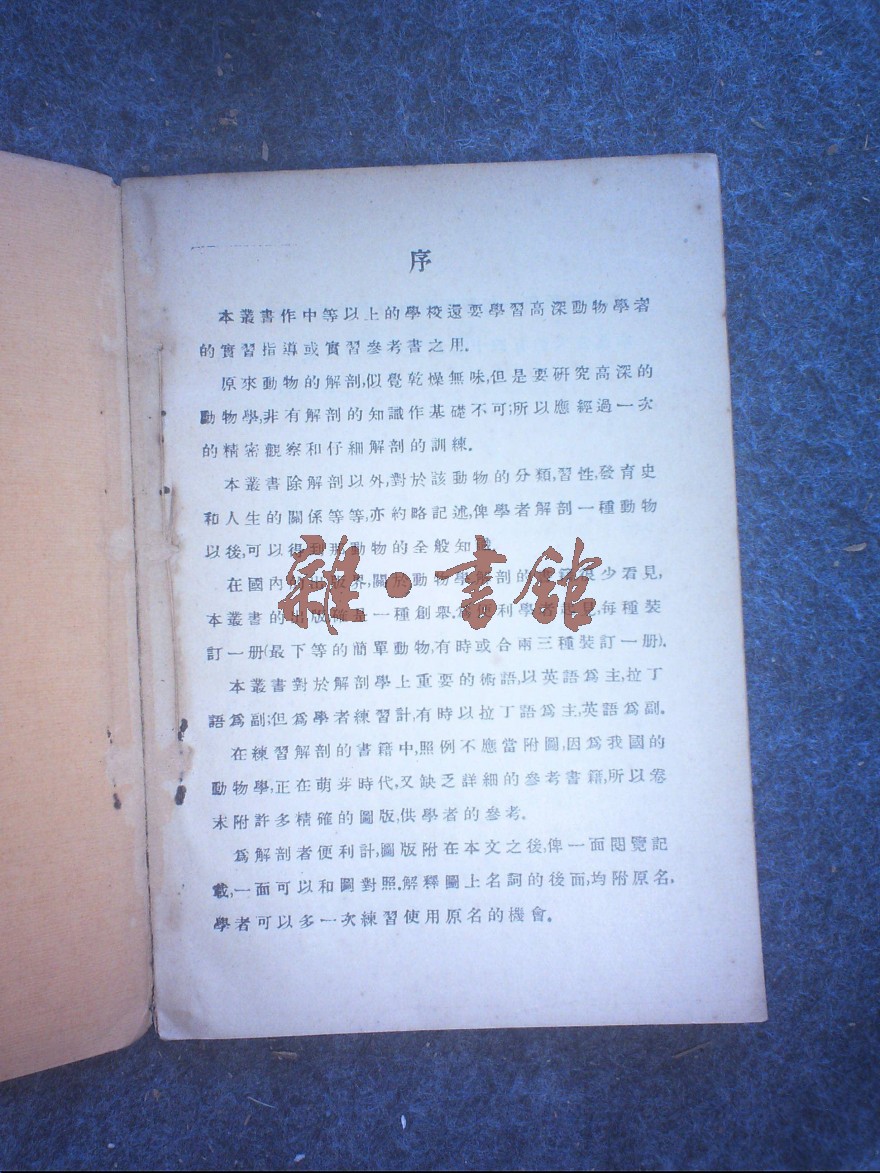 序
本叢書作中等以上的學校還要學習高深動物學者
的實習指導或實習參考書之用.
原來動物的解剖,似覺乾燥無味,但是要研究高深的
動物學,非有解剖的知識作基礎不可;所以應經過一次
的精密觀察和仔細解剖的訓練.
本叢書除解剖以外,對於該動物的分類,習性,發育史
和人生的關係等等,亦約略記述,俾學者解剖一種動物
以後,可以得到那動物的全般知識
在國內的出版界,關於動物學解剖的 很少看見,
本叢書的出版確是一種創舉.爲便利學者起見,每種裝
訂一册(最下等的簡單動物,有時或合兩三種裝訂一册).
本叢書對於解剖學上重要的術語,以英語爲主,拉丁
語爲副;但爲學者練習計,有時以拉丁語爲主,英語爲副.
在練習解剖的書籍中,照例不應當附圖,因爲我國的
動物學,正在萌芽時代,又缺乏詳細的參考書籍,所以卷
末附許多精確的圖版,供學者的參考.
爲解剖者便利計,圖版附在本文之後,俾一面閱覽記
載,一面可以和圖對照,解釋圖上名詞的後面,均附原名,
學者可以多一次練習使用原名的機會.
雜·書館